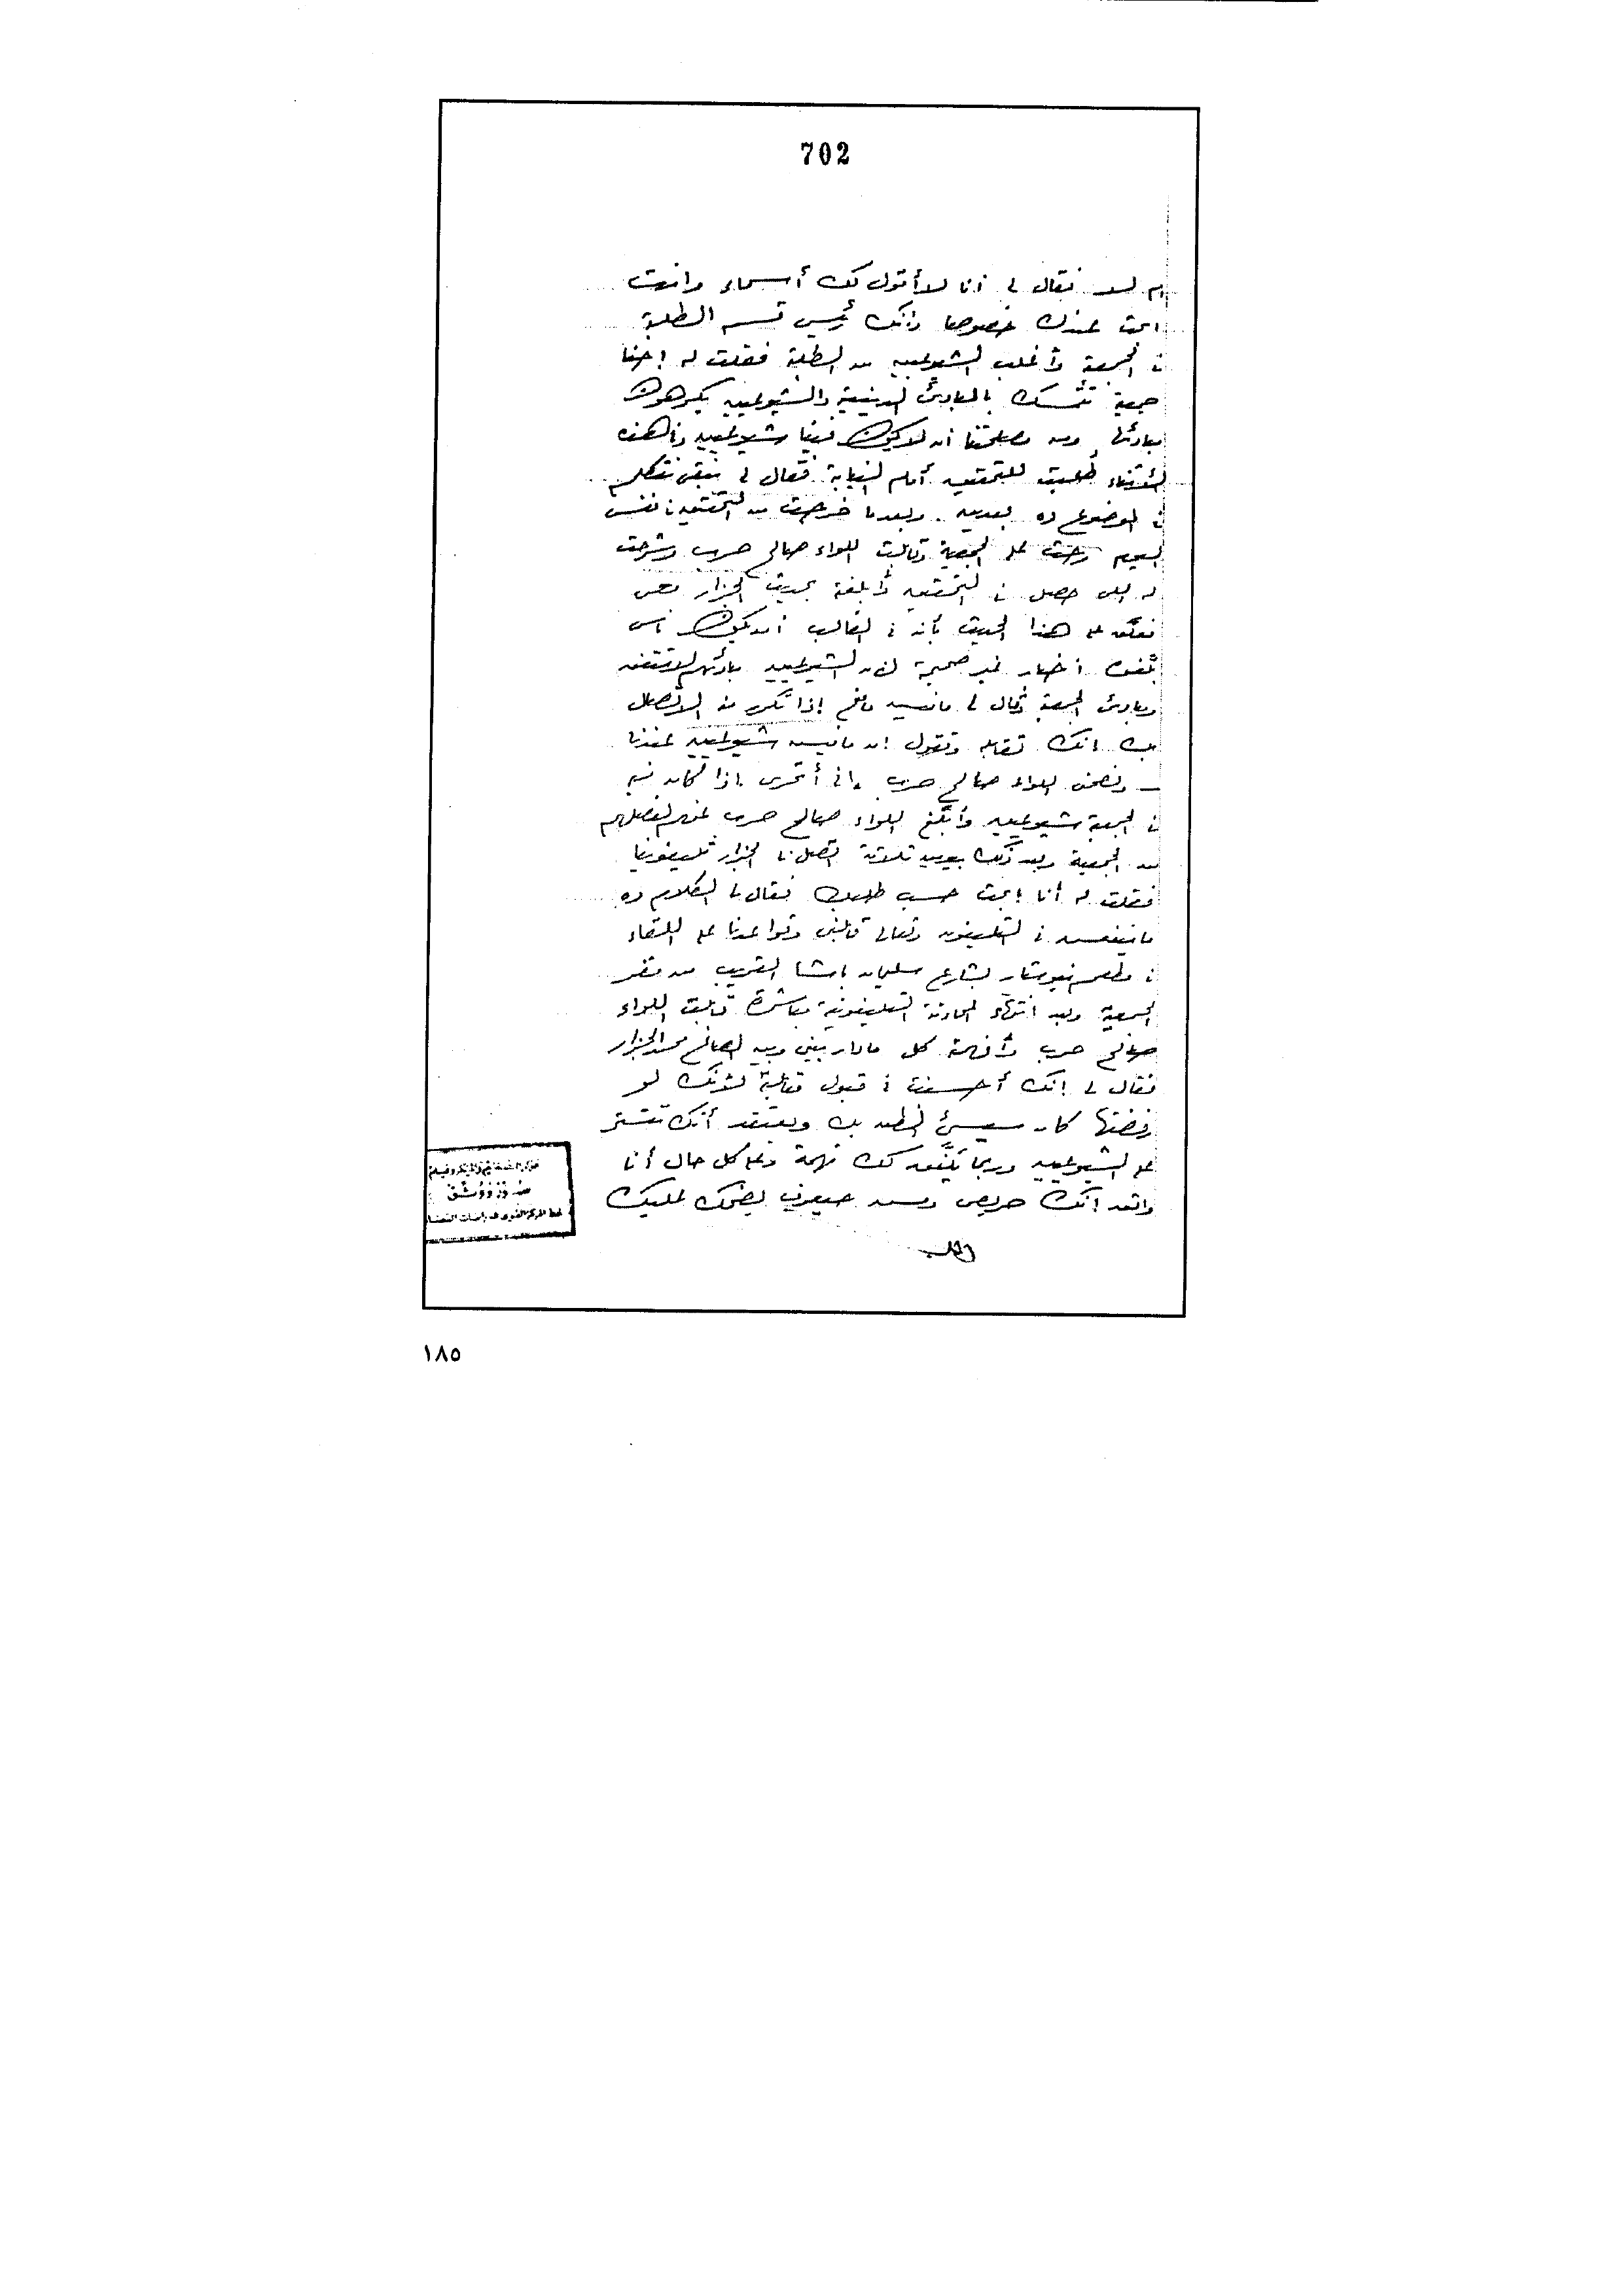 702
أم لا فقال لى أنا لا أقول لك أسماء وانت
ابحث عندك خصوصا وانك رئيس قسم الطلبة
فى الجمعية وأغلب الشيوعيين من الطلبة فقلت له إحنا
جمعية تتمسك بالمبادئ الدينية والشيوعيين يكرهون
مبادئنا ومن مصلحتنا أن لا يكون فينا شيوعيين وفى هذه
الأثناء طلبت للتحقيق أمام النيابة فقال لى نبقى نتكلم
فى الموضوع ده بعدين . وبعدما خرجت من التحقيق فى نفس
اليوم رحت على الجمعية وقابلت اللواء صالح حرب وشرحت
له اللى حصل فى التحقيق وأبلغته بحديث الجزار معى
فعلق على هذا الحديث بأنه فى الغالب أن يكون ناس
بلغوه أخبار غير صحيحة لأن الشيوعيين مبادئهم لا تتفق
ومبادئ الجمعية وقال لى مافيش مانع إذا تكرر منه الاتصال
بك انك تقابله وتقول ان مافيش شيوعيين عندنا
ـ ونصحنى اللواء صالح حرب بانى أتحرى إذا كان فيه
فى الجمعية شيوعيين وأبلغ اللواء صالح حرب عنهم لفصلهم
من الجمعية وبعد ذلك بيومين ثلاثة اتصل بى الجزار تليفونيا
فقلت له أنا بحثت حسب طلبك فقال لى الكلام ده
ماينفعش فى التليفون وتعالى قابلنى وتواعدنا على اللقاء
فى مطعم نيوستار بشارع سليمان باشا القريب من مقر
الجمعية وبعد انتهاء المحادثة التليفونية مباشرة قابلت اللواء
صالح حرب وأفهمته كل مادار بينى وبين الصاغ محمد الجزار
فقال لى إنك أحسنت فى قبول مقابلته لأنك لو
رفضتها كان سيسئ الظن بك ويعتقد أنك تتستر
على الشيوعيين وربما يلفق لك تهمة وعلى كل حال أنا
واثق انك حريص ومش حيعرف يضحك عليك
١٨٥